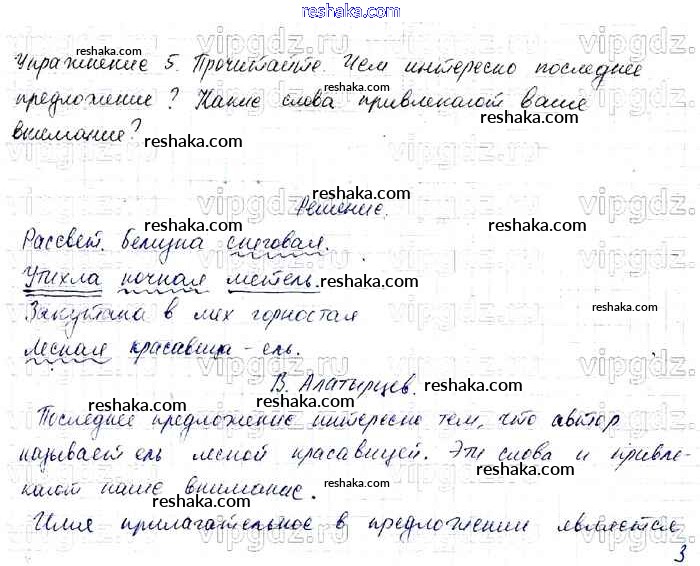 reshaka.com
Упражнение 5. Прочитайте. Чем интересно последнее
предложение? Какие слова привлекают ваше
внимание?
Решение.
Рассвет. Белизна снеговая.
Утихла ночная метель.
Закутана в мех горностая
Лесная красавица - ель.
В. Алатырцев.
Последнее предложение интересно тем, что автор
называет ель лесной красавицей. Эти слова и привле-
кают наше внимание.
Имя прилагательное в предложении является
3